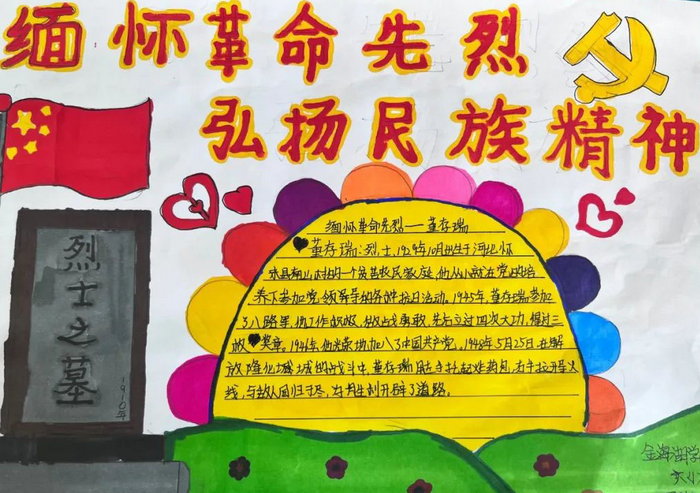 缅怀革命先烈
弘扬民族精神
烈士之墓
1910年
缅怀革命先烈——董存瑞
董存瑞:烈士,1929年10月出生于河北怀
来县南山村的一个贫苦农民家庭,他从小就在党的培
养下参加党领导的各种抗日活动。1945年,董存瑞参加
了八路军,他工作积极,作战勇敢,先后立过四次大功,得过三
枚 奖章。1946年,他光荣地加入了中国共产党。1948年5月25日,在解
放隆化城的战斗中,董存瑞用左手托起炸药包,右手拉开导火
线,与敌人同归于尽,为胜利开辟了道路。
金海湖学